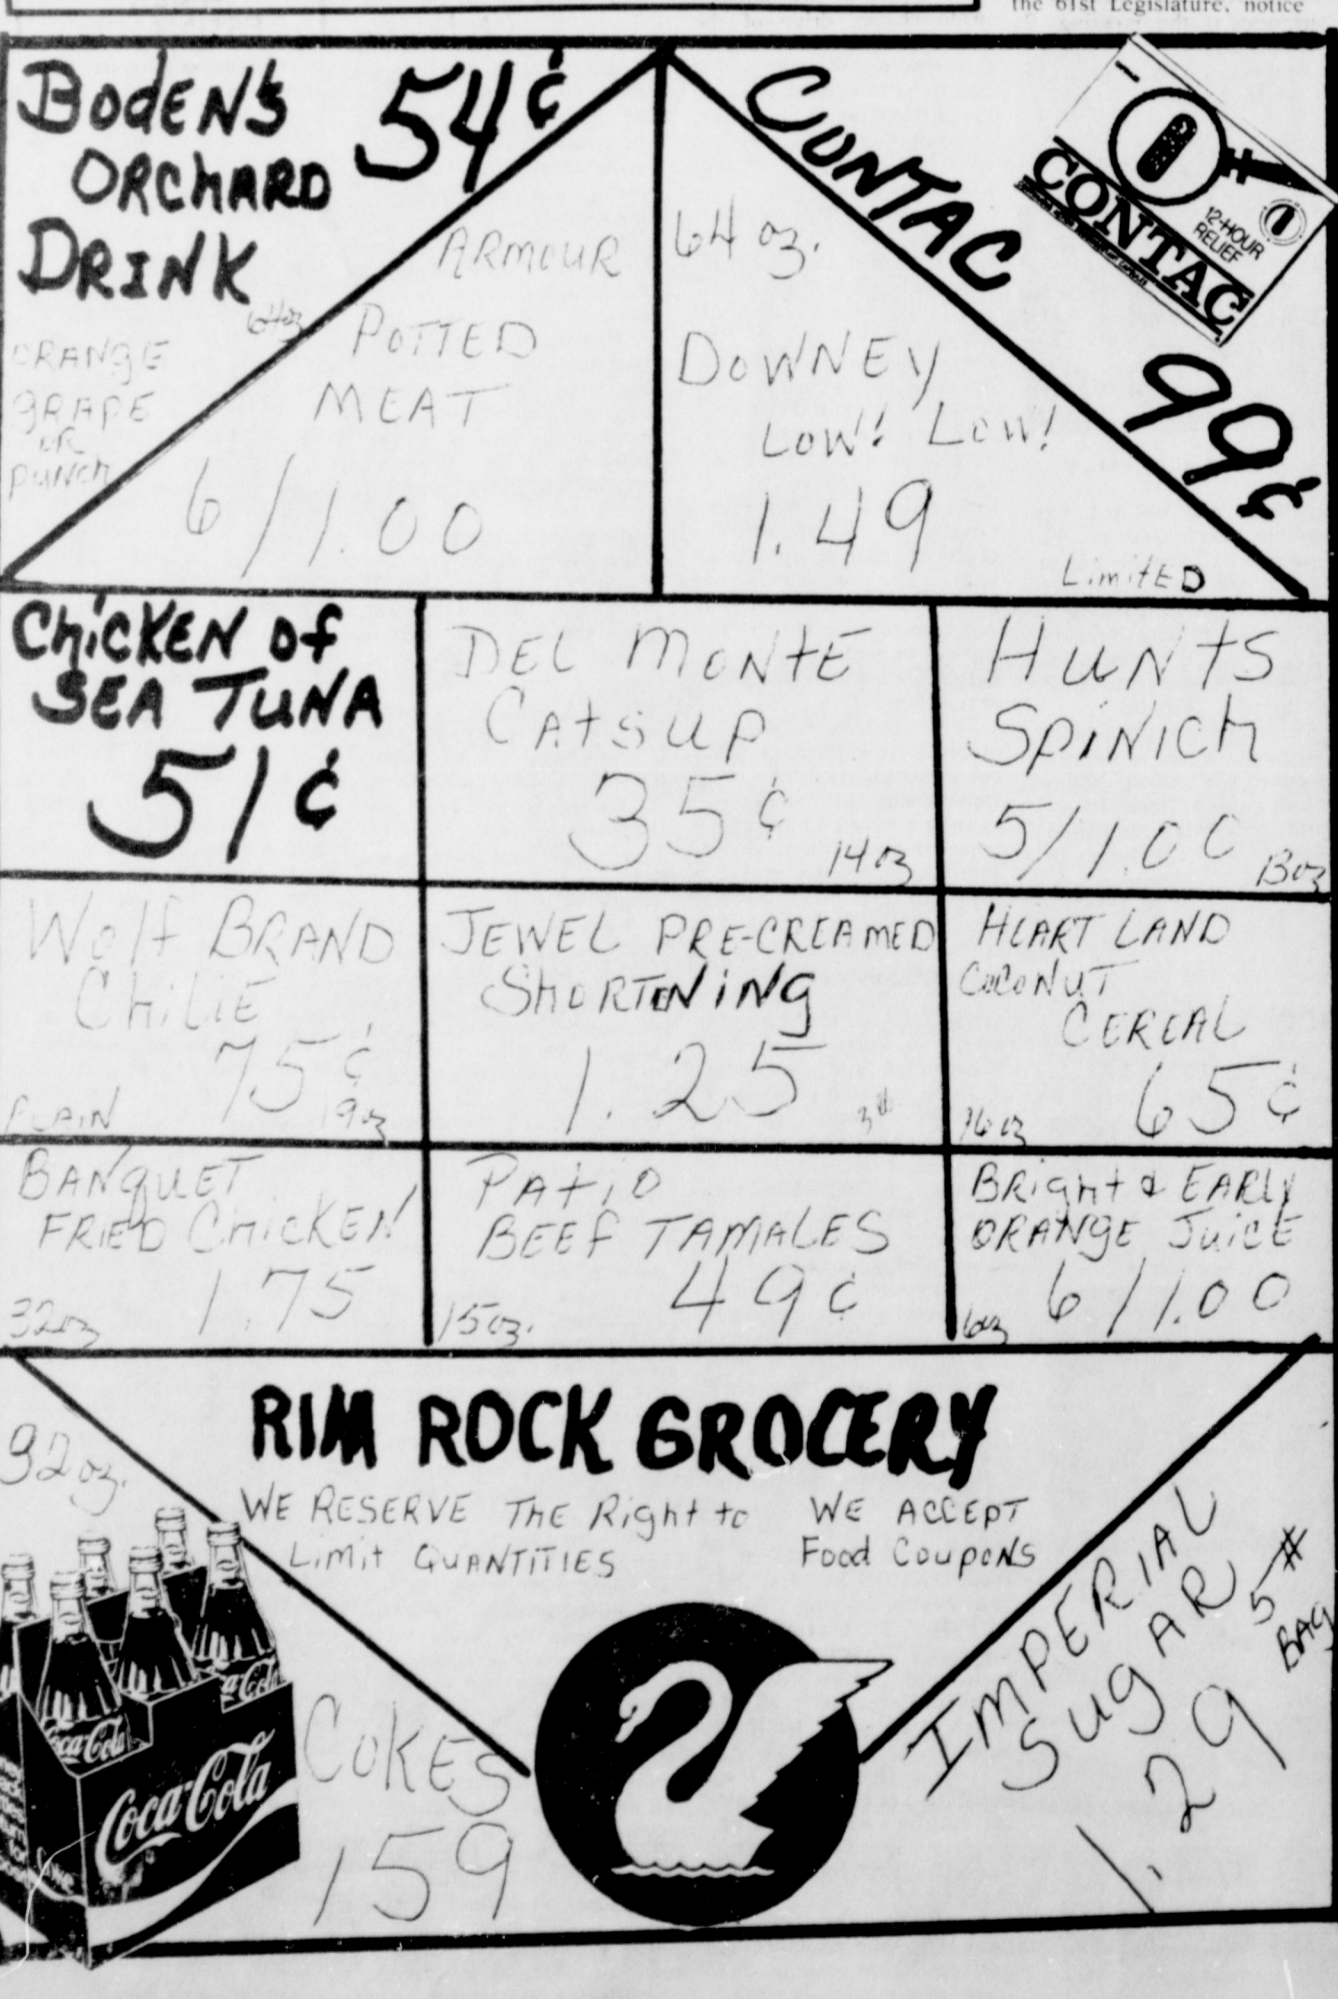 the 61st Legislature, notice
BodEN's
ORCHARD
DRINK
54¢
64oz
ORANGE
GRAPE
OR
PUNCH
ARMOUR
POTTED
MEAT
6/1.00
64 oz.
DOWNEY
LOW! LOW!
1.49
CONTAC
CONTAC
12-HOUR
RELIEF
99¢
LimitED
CHiCKEN Of
SEA TUNA
51¢
DEL MONtE
CAtSUP
35¢
14oz
HUNtS
SPINICH
5/1.00
13oz
Wolf BRAND
CHiLIE
75¢
PLAIN
19oz
JEWEL PRE-CREAMED
SHORTENiNg
1.25
3lb
HEART LAND
COCONUT
CEREAL
65¢
16oz
BANQUET
FRIED CHICKEN
1.75
32oz
PAtiO
BEEF TAMALES
49¢
15oz.
BRigHt & EARLY
ORANgE JuiCE
6/1.00
6oz
RIM ROCK GROCERY
WE RESERVE THE Right to
Limit QUANTITIES
WE ACCEPT
Food CoupoNS
32oz.
Coca-Cola
Coca-Cola
Coca-Cola
COKES
159
IMPERIAL
SUgAR
5#
BAG
1.29